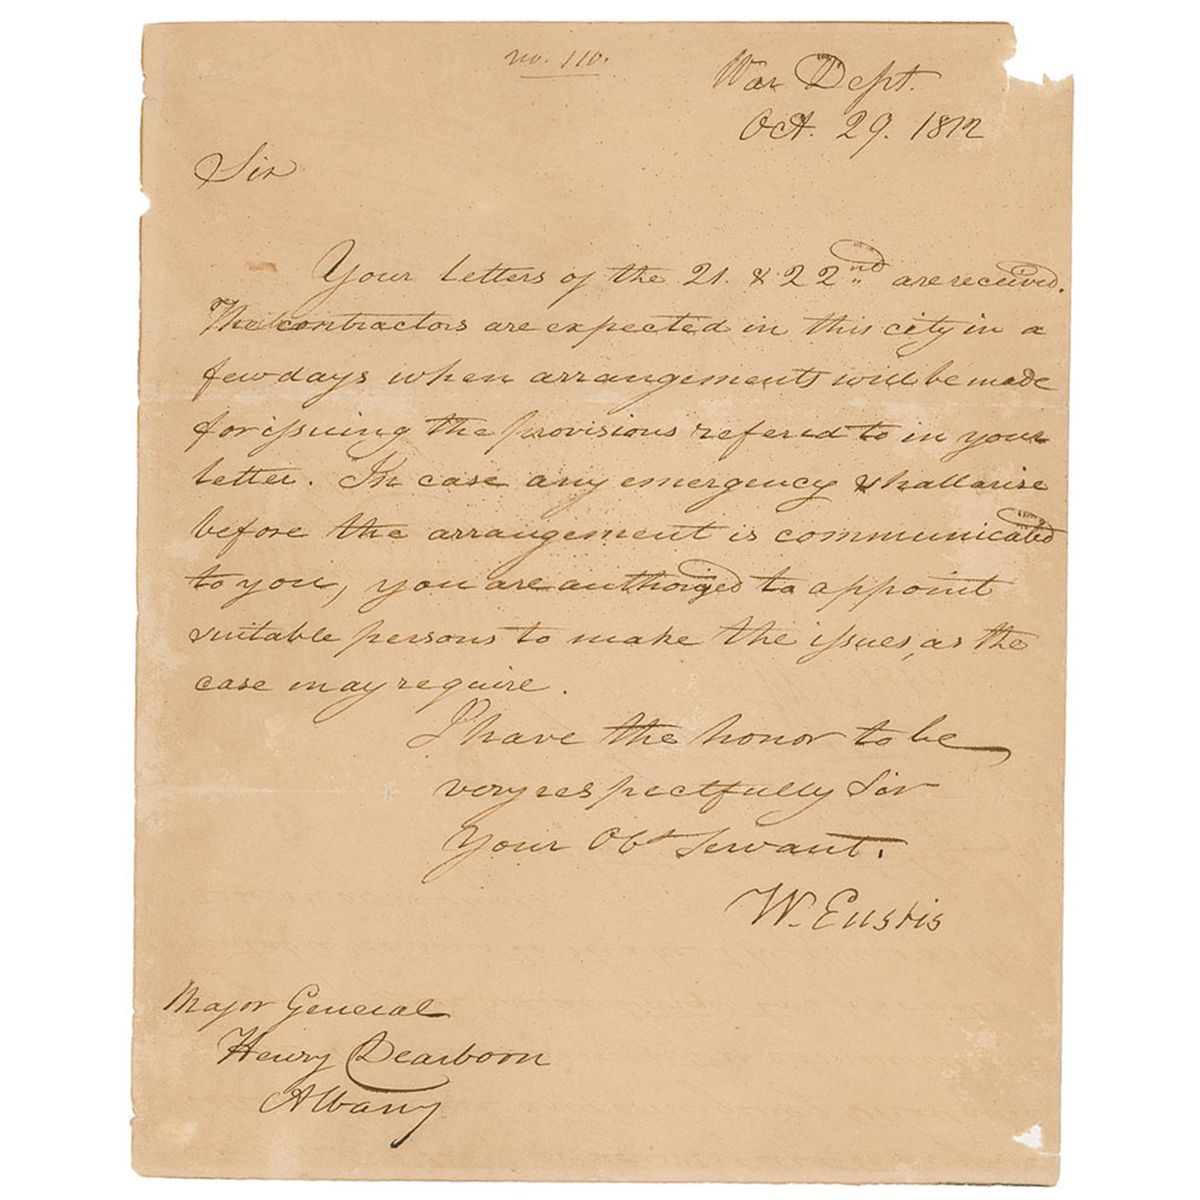 no. 110.
War Dept.
Oct. 29. 1812
Sir
Your letters of the 21. & 22nd are received.
The contractors are expected in this city in a
few days when arrangements will be made
for issuing the provisions refered to in your
letter. In case any emergency shall arise
before the arrangement is communicated
to you, you are authorized to appoint
suitable persons to make the issues, as the
case may require.
I have the honor to be
very respectfully Sir
Your Obt Servant.
W. Eustis
Major General
Henry Dearborn
Albany